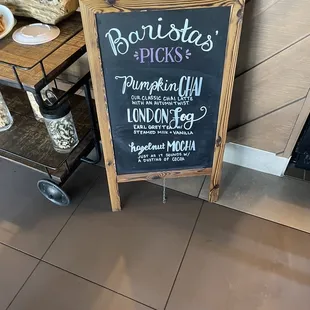 Baristas'
PICKS
Pumpkin CHAI
OUR CLASSIC CHAI LATTE
WITH AN AUTUMN TWIST
LONDON Fog
EARL GREY TEA W/
STEAMED MILK + VANILLA
hazelnut MOCHA
JUST AS IT SOUNDS W/
A DUSTING OF COCOA